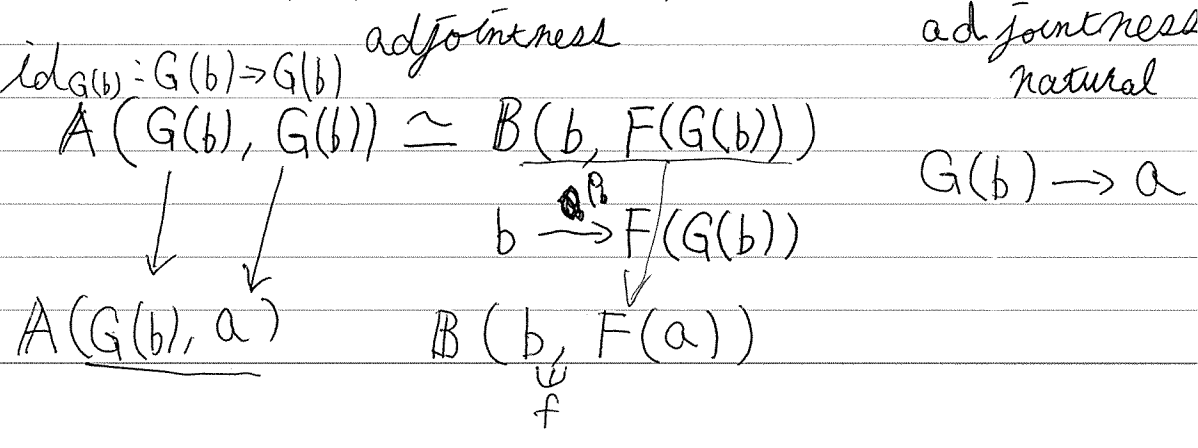 adjointness
adjointness
natural
id_{G(b)} : G(b) → G(b)
A(G(b), G(b)) ≃ B(b, F(G(b)))
G(b) → a
b → F(G(b))
A(G(b), a) B(b, F(a))
f